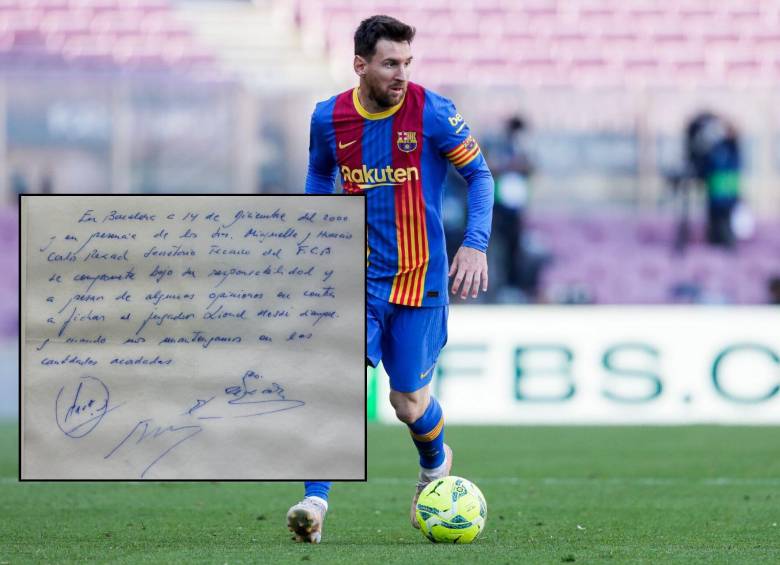 En Barcelona a 14 de diciembre del 2000
y en presencia de los Sres. Minguella y Horacio
Carlos Rexach Secretario Técnico del F.C.B
se compromete bajo su responsabilidad y
a pesar de algunas opiniones en contra
a fichar al jugador Lionel Messi siempre
y cuando nos mantengamos en las
cantidades acordadas.
beko
Rakuten
FBS.C